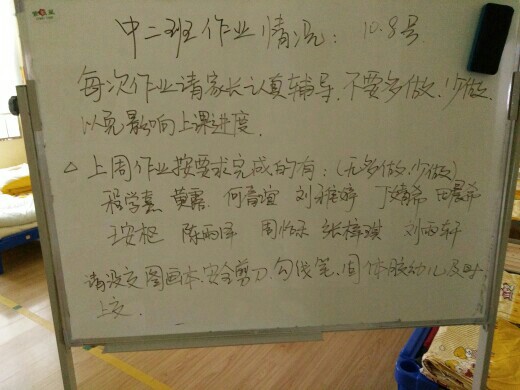 中二班作业情况: 10.8号
每次作业请家长认真辅导.不要多做.少做.
以免影响上课进度.
△上周作业按要求完成的有:(无多做.少做)
程学熹 黄露 何 宜 刘 婷 丁 希 田晨希
王安枢 陈雨泽 周怡 张梓琪 刘雨轩
请没交图画本.安全剪刀.勾线笔.固体胶幼儿及时
上交.